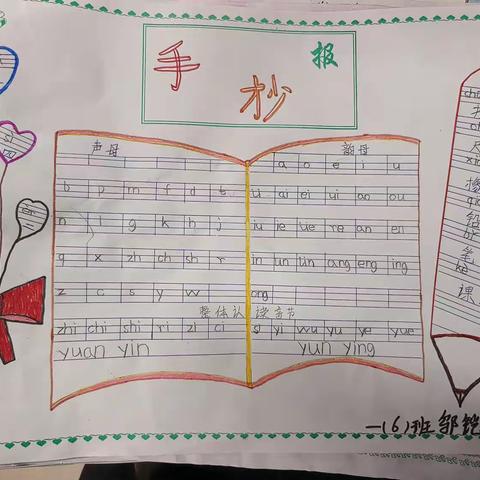 手抄报
声母 韵母
a o e i u
b p m f d t ü ai ei ui ao ou
n l g k h j iu ie üe er an en
q x zh ch sh r in un ün ang eng ing
z c s y w ong
整体认读音节
zhi chi shi ri zi ci si yi wu yu ye yue
yuan yin yun ying
橡
铅
笔
课
一(6)班 邹